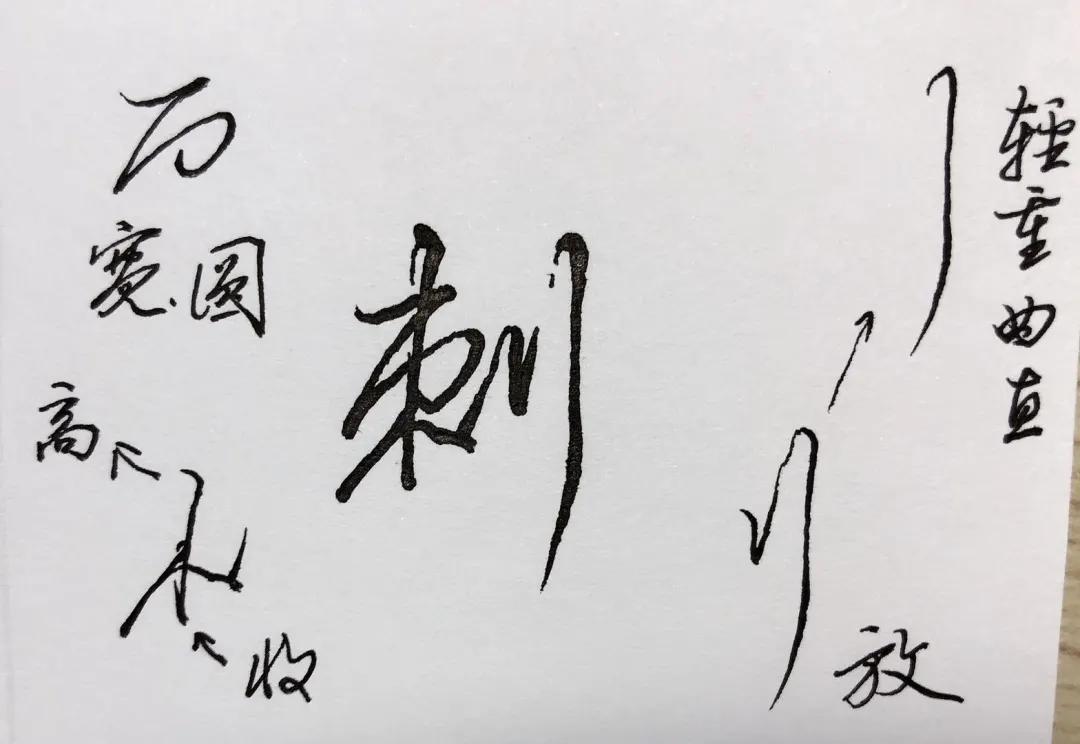 宽圆
高
收
刺
輕重曲直
放